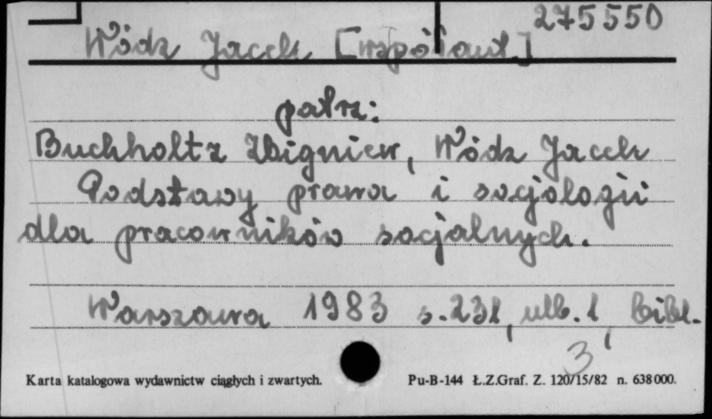 275550
Wódz Jacek [współaut.]
patrz:
Buchholtz Zbigniew, Wódz Jacek
Podstawy prawa i socjologii
dla pracowników socjalnych.
Warszawa 1983 s. 231, ulb. 1, bibl.
3
Karta katalogowa wydawnictw ciągłych i zwartych. Pu-B-144 Ł.Z.Graf. Z. 120/15/82 n. 638000.